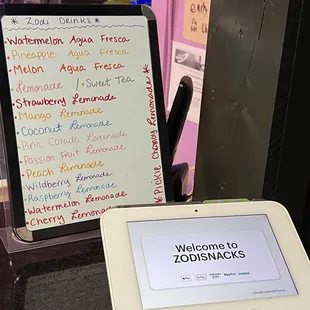 * Zodi Drinks *
•Watermelon Agua Fresca
•Pineapple Agua Fresca
•Melon Agua Fresca
•Lemonade / •Sweet Tea
•Strawberry Lemonade
•Mango Lemonade
•Coconut Lemonade
•Pina Colada Lemonade
•Passion Fruit Lemonade
•Peach Lemonade
•Wildberry Lemonade
•Raspberry Lemonade
•Watermelon Lemonade
•Cherry Lemonade
* Pickle Chamoy Lemonade *
Welcome to
ZODISNACKS
PayPal